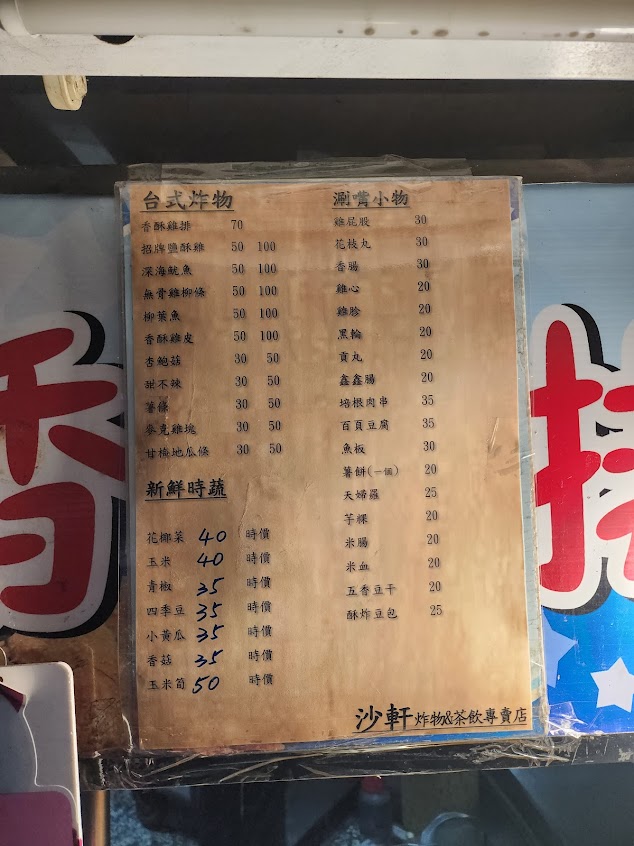 台式炸物
香酥雞排 70
招牌鹽酥雞 50 100
深海魷魚 50 100
無骨雞柳條 50 100
柳葉魚 50 100
香酥雞皮 50 100
杏鮑菇 30 50
甜不辣 30 50
薯條 30 50
麥克雞塊 30 50
甘梅地瓜條 30 50
新鮮時蔬
花椰菜 40 時價
玉米 40 時價
青椒 35 時價
四季豆 35 時價
小黃瓜 35 時價
香菇 35 時價
玉米筍 50 時價
涮嘴小物
雞屁股 30
花枝丸 30
香腸 30
雞心 20
雞胗 20
黑輪 20
貢丸 20
鑫鑫腸 20
培根肉串 35
百頁豆腐 35
魚板 30
薯餅(一個) 20
天婦羅 25
芋粿 20
米腸 20
米血 20
五香豆干 20
酥炸豆包 25
沙軒炸物&茶飲專賣店
香